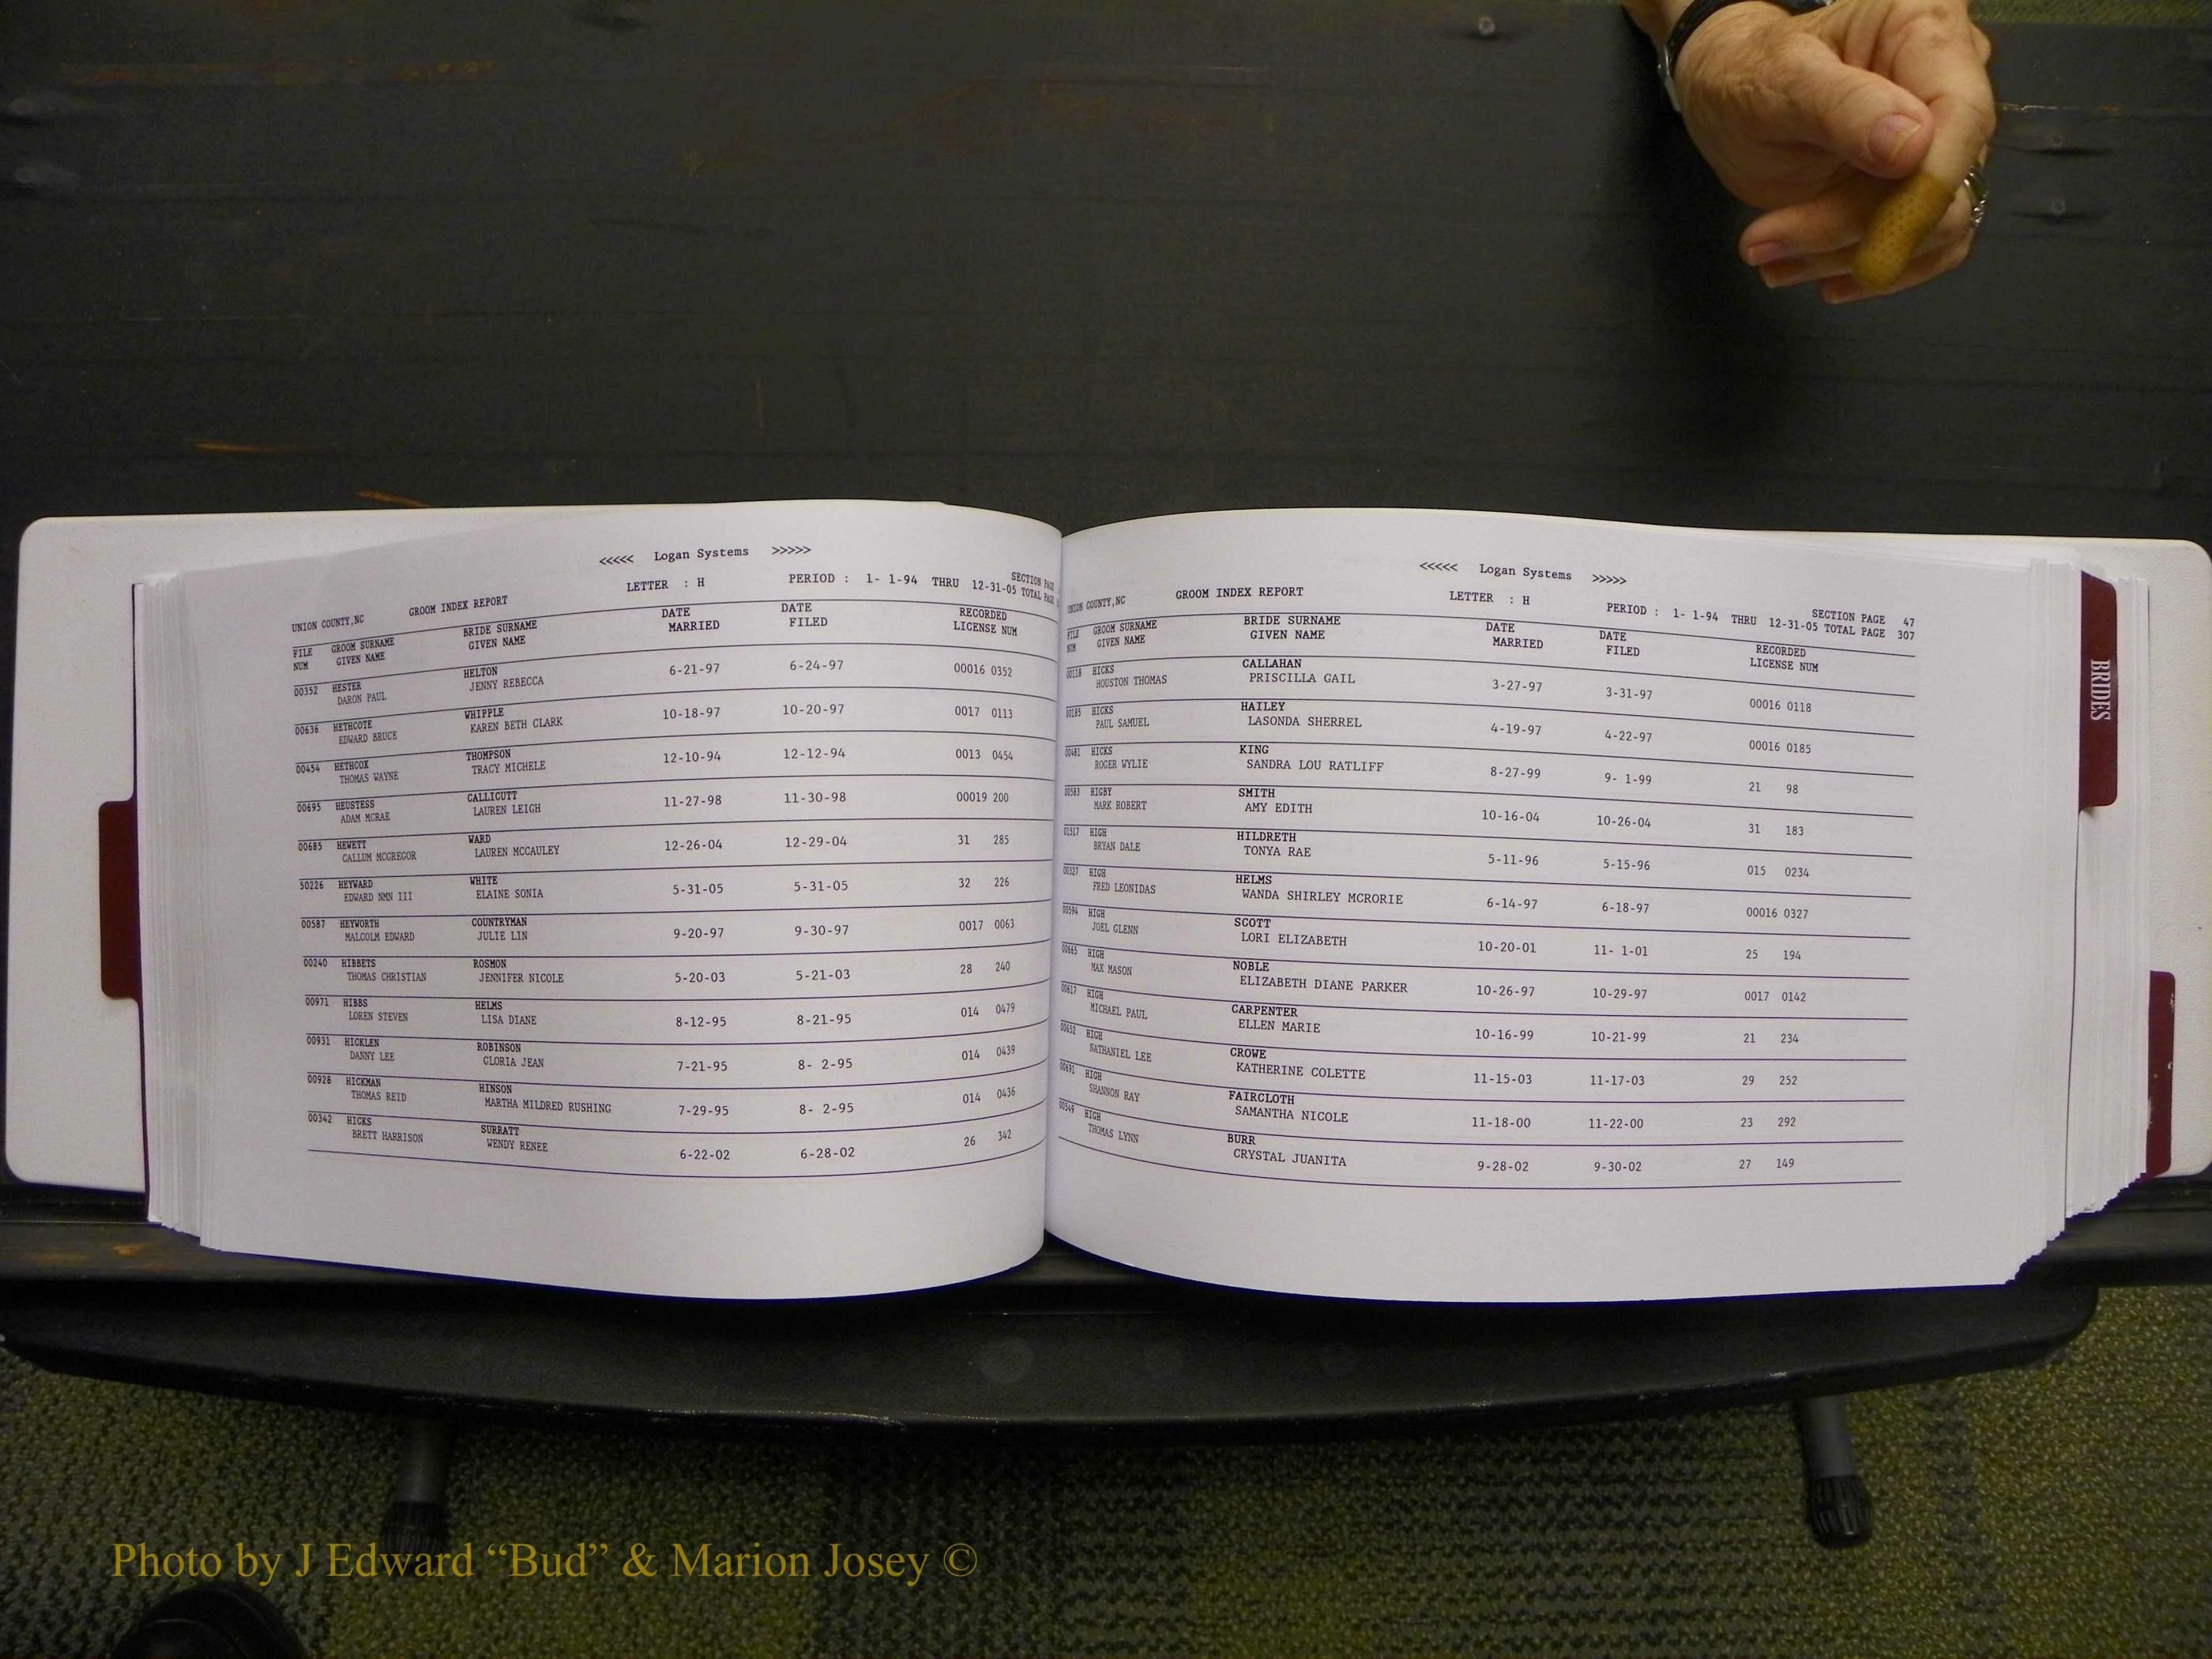 <<<<< Logan Systems >>>>>
UNION COUNTY,NC GROOM INDEX REPORT LETTER : H PERIOD : 1- 1-94 THRU 12-31-05 SECTION PAGE
TOTAL PAGE
FILE GROOM SURNAME BRIDE SURNAME DATE DATE RECORDED
NUM GIVEN NAME GIVEN NAME MARRIED FILED LICENSE NUM
00352 HESTER HELTON 6-21-97 6-24-97 00016 0352
DARON PAUL JENNY REBECCA
00636 HETHCOTE WHIPPLE 10-18-97 10-20-97 0017 0113
EDWARD BRUCE KAREN BETH CLARK
00454 HETHCOX THOMPSON 12-10-94 12-12-94 0013 0454
THOMAS WAYNE TRACY MICHELE
00695 HEUSTESS CALLICUTT 11-27-98 11-30-98 00019 200
ADAM MCRAE LAUREN LEIGH
00685 HEWETT WARD 12-26-04 12-29-04 31 285
CALLUM MCGREGOR LAUREN MCCAULEY
50226 HEYWARD WHITE 5-31-05 5-31-05 32 226
EDWARD NMN III ELAINE SONIA
00587 HEYWORTH COUNTRYMAN 9-20-97 9-30-97 0017 0063
MALCOLM EDWARD JULIE LIN
00240 HIBBETS ROSMON 5-20-03 5-21-03 28 240
THOMAS CHRISTIAN JENNIFER NICOLE
00971 HIBBS HELMS 8-12-95 8-21-95 014 0479
LOREN STEVEN LISA DIANE
00931 HICKLEN ROBINSON 7-21-95 8- 2-95 014 0439
DANNY LEE GLORIA JEAN
00928 HICKMAN HINSON 7-29-95 8- 2-95 014 0436
THOMAS REID MARTHA MILDRED RUSHING
00342 HICKS SURRATT 6-22-02 6-28-02 26 342
BRETT HARRISON WENDY RENEE
<<<<< Logan Systems >>>>>
UNION COUNTY,NC GROOM INDEX REPORT LETTER : H PERIOD : 1- 1-94 THRU 12-31-05 SECTION PAGE 47
TOTAL PAGE 307
FILE GROOM SURNAME BRIDE SURNAME DATE DATE RECORDED
NUM GIVEN NAME GIVEN NAME MARRIED FILED LICENSE NUM
00118 HICKS CALLAHAN 3-27-97 3-31-97 00016 0118
HOUSTON THOMAS PRISCILLA GAIL
00185 HICKS HAILEY 4-19-97 4-22-97 00016 0185
PAUL SAMUEL LASONDA SHERREL
00481 HICKS KING 8-27-99 9- 1-99 21 98
ROGER WYLIE SANDRA LOU RATLIFF
00583 HIGBY SMITH 10-16-04 10-26-04 31 183
MARK ROBERT AMY EDITH
01517 HIGH HILDRETH 5-11-96 5-15-96 015 0234
BRYAN DALE TONYA RAE
00327 HIGH HELMS 6-14-97 6-18-97 00016 0327
FRED LEONIDAS WANDA SHIRLEY MCRORIE
00594 HIGH SCOTT 10-20-01 11- 1-01 25 194
JOEL GLENN LORI ELIZABETH
00665 HIGH NOBLE 10-26-97 10-29-97 0017 0142
MAX MASON ELIZABETH DIANE PARKER
00617 HIGH CARPENTER 10-16-99 10-21-99 21 234
MICHAEL PAUL ELLEN MARIE
00652 HIGH CROWE 11-15-03 11-17-03 29 252
NATHANIEL LEE KATHERINE COLETTE
00691 HIGH FAIRCLOTH 11-18-00 11-22-00 23 292
SHANNON RAY SAMANTHA NICOLE
00549 HIGH BURR 9-28-02 9-30-02 27 149
THOMAS LYNN CRYSTAL JUANITA
BRIDES
Photo by J Edward “Bud” & Marion Josey ©